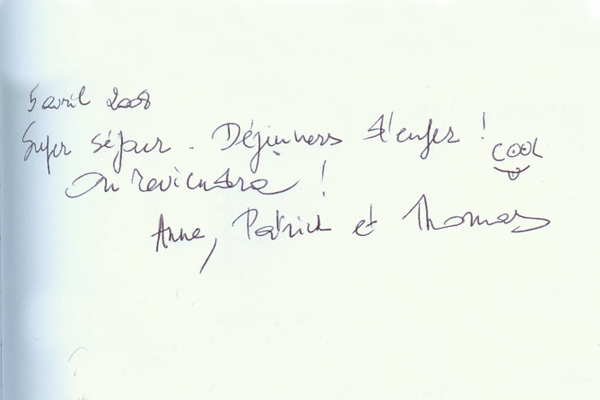 5 avril 2008
Super séjour. Déjeuners d'enfer !
COOL
On reviendra !
Anne, Patrick et Thomas